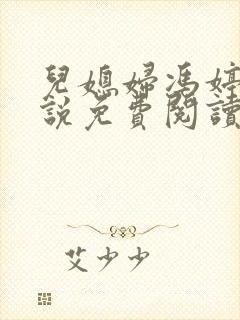 兒媳婦馮婷
說免費閱讀
艾少少